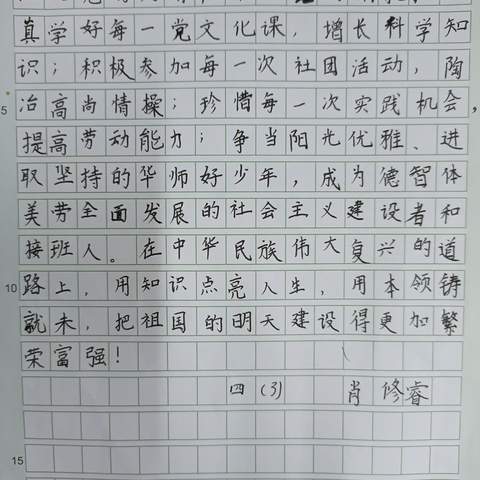 真学好每一党文化课，增长科学知
识；积极参加每一次社团活动，陶
5 冶高尚情操；珍惜每一次实践机会，
提高劳动能力；争当阳光优雅、进
取坚持的华师好少年，成为德智体
美劳全面发展的社会主义建设者和
接班人。在中华民族伟大复兴的道
10 路上，用知识点亮人生，用本领铸
就未，把祖国的明天建设得更加繁
荣富强！
四(3) 肖修睿
15